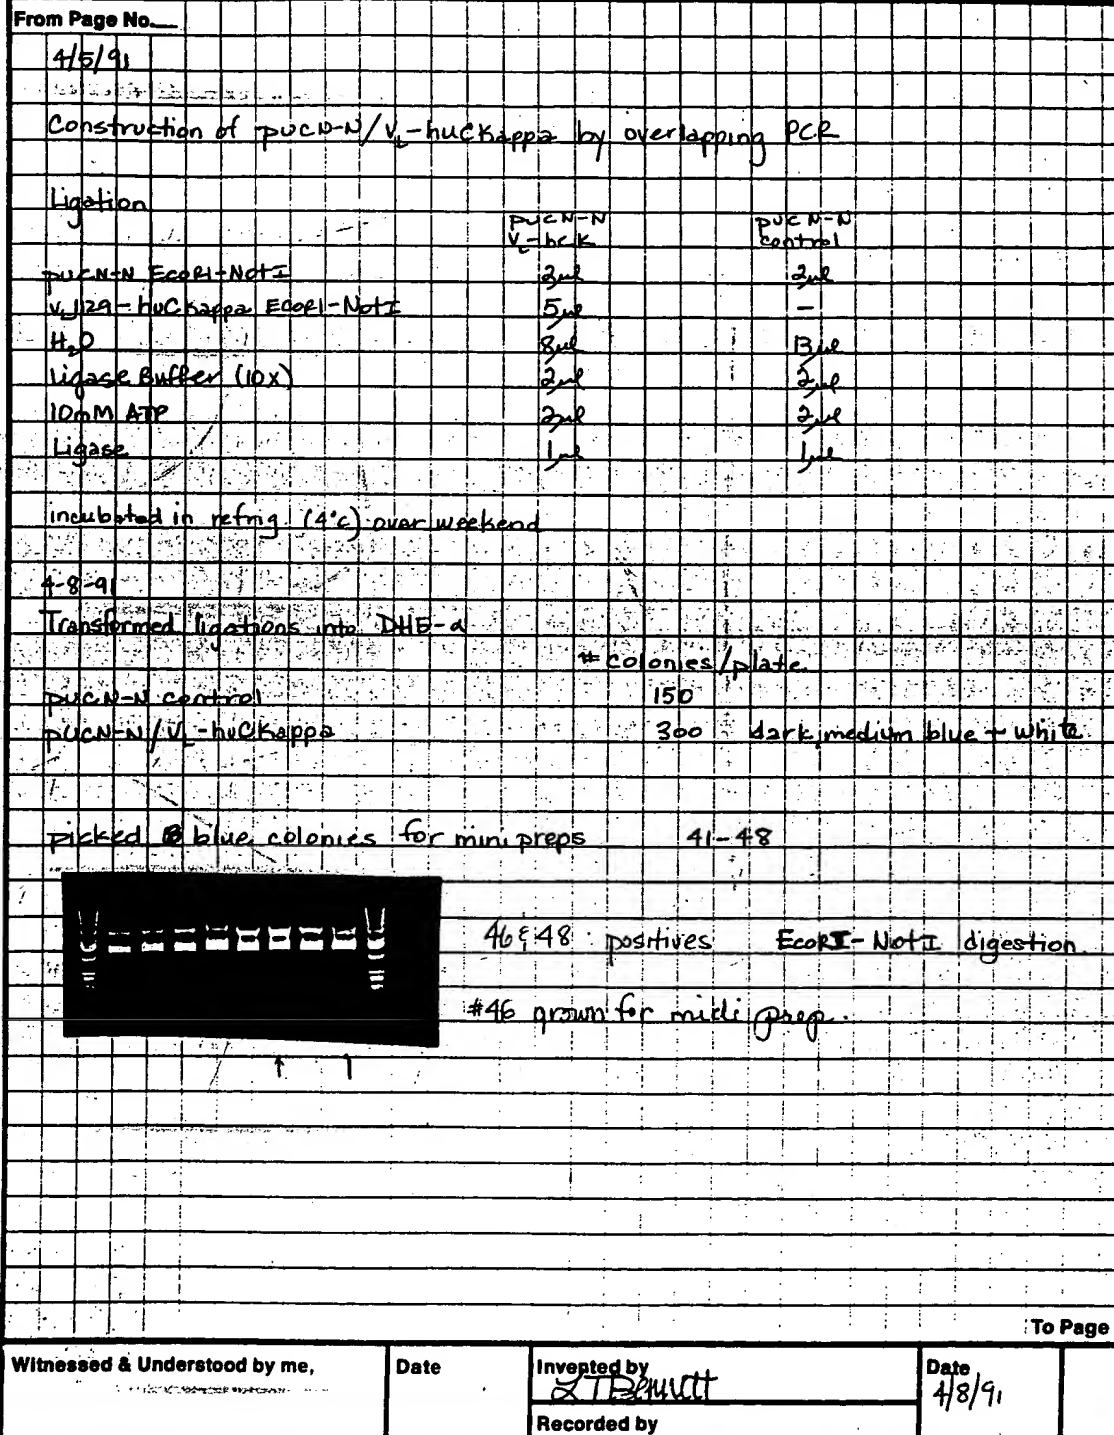 From Page No.
4/5/91
Construction of pucN-N/VL-huCkappa by overlapping PCR
Ligation
pucN-N VL-hck pucN-N control
pucN-N EcoRI-NotI 2µl 2µl
VLJ129-huCkappa EcoRI-NotI 5µl –
H2O 8µl 13µl
Ligase Buffer (10x) 2µl 2µl
10mM ATP 2µl 2µl
Ligase 1µl 1µl
incubated in refrig. (4°c) over weekend
4-8-91
Transformed ligations into DH5-α
# colonies/plate
pucN-N control 150
pucN-N/VL-huCkappa 300 dark, medium blue + white
picked 8 blue colonies for mini preps 41-48
46 & 48 positives EcoRI-NotI digestion
#46 grown for midi prep.
To Page
Witnessed & Understood by me,
Date
Invented by
Date
4/8/91
Recorded by